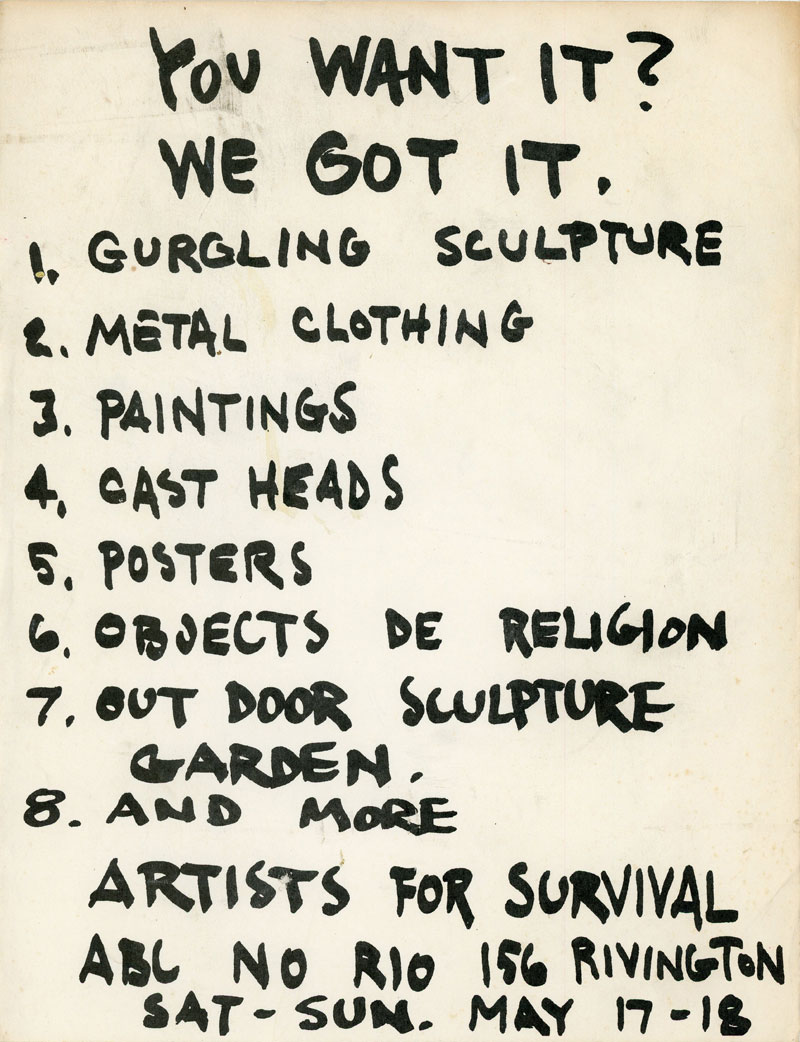 YOU WANT IT?
WE GOT IT.
1. GURGLING SCULPTURE
2. METAL CLOTHING
3. PAINTINGS
4. CAST HEADS
5. POSTERS
6. OBJECTS DE RELIGION
7. OUT DOOR SCULPTURE
GARDEN.
8. AND MORE
ARTISTS FOR SURVIVAL
ABC NO RIO 156 RIVINGTON
SAT-SUN. MAY 17-18